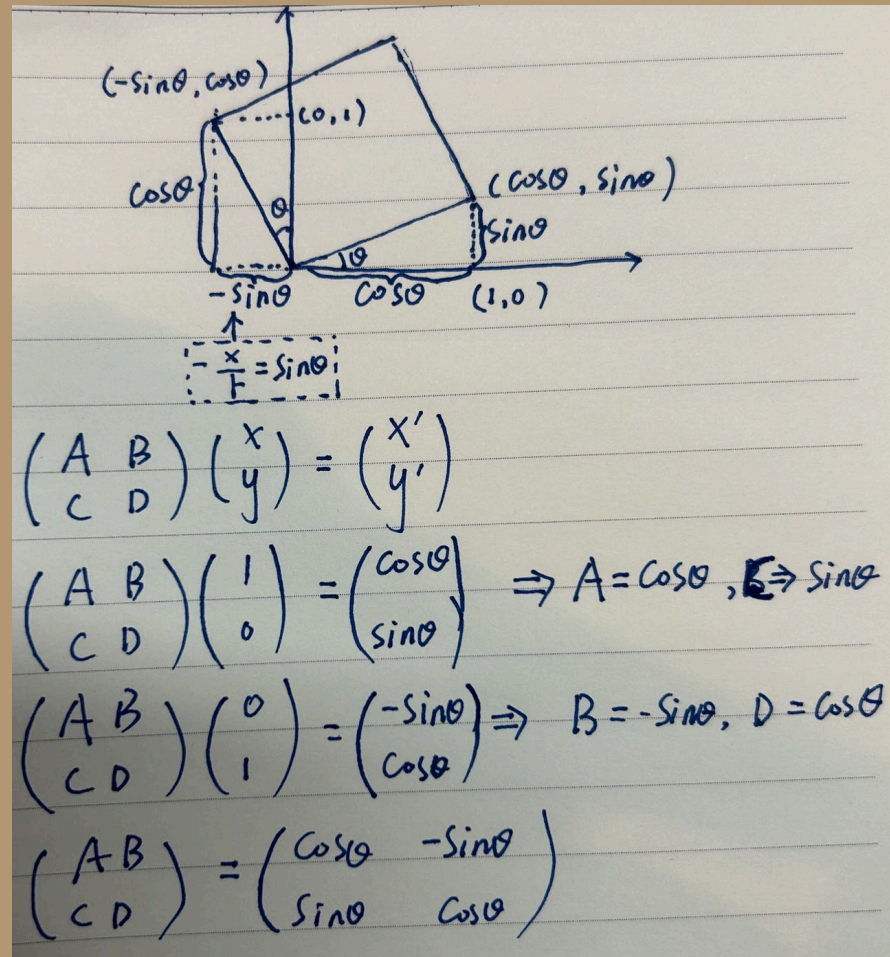 (-sinθ, cosθ)
(0,1)
cosθ
θ
(cosθ, sinθ)
sinθ
θ
-sinθ
cosθ
(1,0)
- x/r = sinθ
(A B; C D)(x; y) = (x'; y')
(A B; C D)(1; 0) = (cosθ; sinθ) ⇒ A = cosθ, ⇒ sinθ
(A B; C D)(0; 1) = (-sinθ; cosθ) ⇒ B = -sinθ, D = cosθ
(A B; C D) = (cosθ -sinθ; sinθ cosθ)